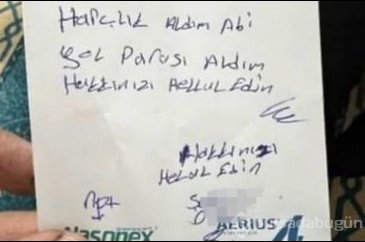 Harçlık Aldım Abi
Yol Parası Aldım
Hakkınızı Hellul Edin
Hakkınızı
Helul Edin
Nasonex
AERIUS